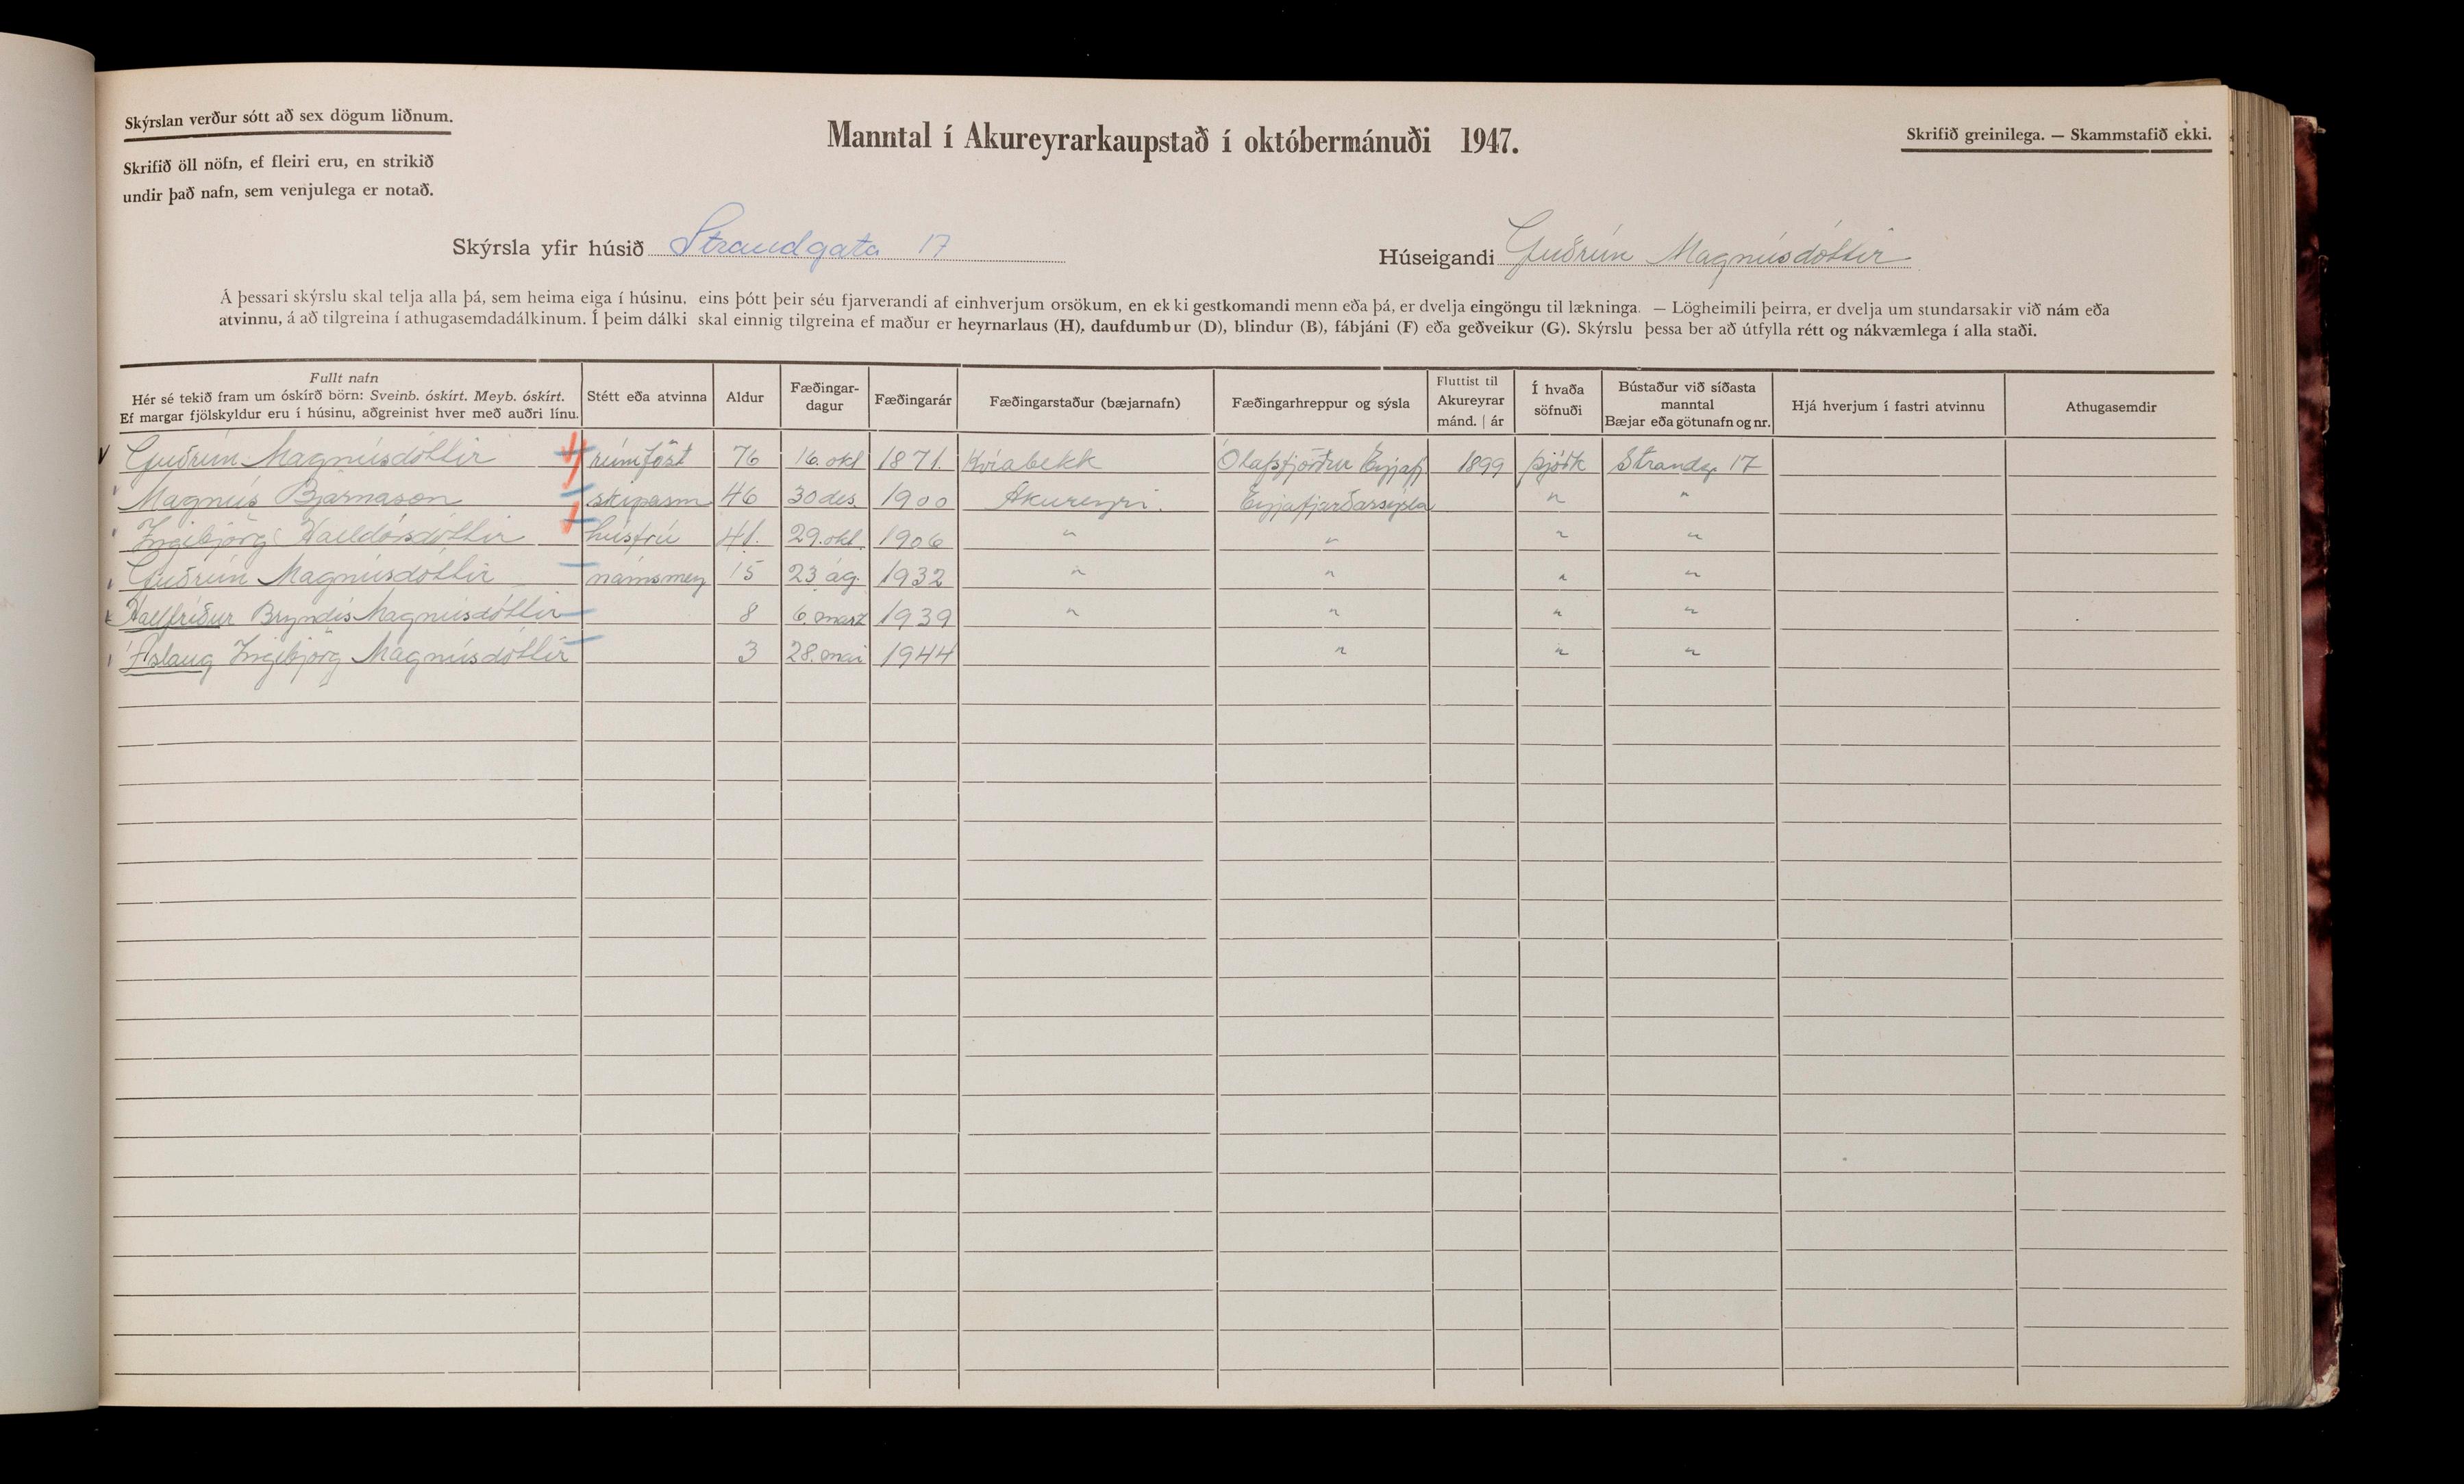 Skýrslan verður sótt að sex dögum liðnum.
Skrifið öll nöfn, ef fleiri eru, en strikið
undir það nafn, sem venjulega er notað.
Manntal í Akureyrarkaupstað í októbermánuði 1947.
Skrifið greinilega. — Skammstafið ekki.
Skýrsla yfir húsið Strandgata 17
Húseigandi Guðrún Magnúsdóttir
Á þessari skýrslu skal telja alla þá, sem heima eiga í húsinu, eins þótt þeir séu fjarverandi af einhverjum orsökum, en ekki gestkomandi menn eða þá, er dvelja eingöngu til lækninga. — Lögheimili þeirra, er dvelja um stundarsakir við nám eða
atvinnu, á að tilgreina í athugasemdadálkinum. Í þeim dálki skal einnig tilgreina ef maður er heyrnarlaus (H), daufdumbur (D), blindur (B), fábjáni (F) eða geðveikur (G). Skýrslu þessa ber að útfylla rétt og nákvæmlega í alla staði.
Fullt nafn
Hér sé tekið fram um óskírð börn: Sveinb. óskírt. Meyb. óskírt.
Ef margar fjölskyldur eru í húsinu, aðgreinist hver með auðri línu.
Stétt eða atvinna
Aldur
Fæðingar-
dagur
Fæðingarár
Fæðingarstaður (bæjarnafn)
Fæðingarhreppur og sýsla
Fluttist til
Akureyrar
mánd. | ár
Í hvaða
söfnuði
Bústaður við síðasta
manntal
Bæjar eða götunafn og nr.
Hjá hverjum í fastri atvinnu
Athugasemdir
Guðrún Magnúsdóttir rúmföst 76 16. okt 1871. Kvíabekk Ólafsfjörður Eyjafj 1899 þjóðk Strandg. 17
Magnús Bjarnason skipasm 46 30 des. 1900 Akureyri. Eyjafjarðarsýsla " "
Ingibjörg Halldórsdóttir húsfrú 41. 29. okt. 1906 " " " "
Guðrún Magnúsdóttir námsmey 15 23 ág. 1932 " " " "
Hallfríður Bryndís Magnúsdóttir 8 6. marz 1939 " " " "
Áslaug Ingibjörg Magnúsdóttir 3 28. mai 1944 " " "